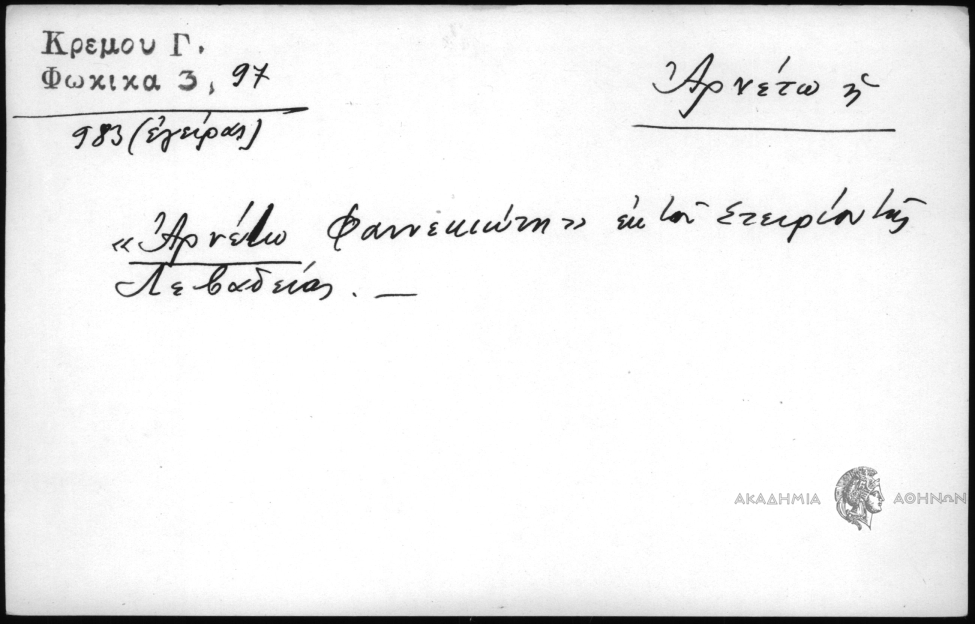 Κρεμου Γ.
Φωκικα 3, 97
Ἀρνέτω ἡ
983 (ἐγείρας)
«Ἀρνέτω Φαννεκιώτη» ἐκ τοῦ Στειρίου τῆς
Λεβαδείας. —
ΑΚΑΔΗΜΙΑ ΑΘΗΝΩΝ